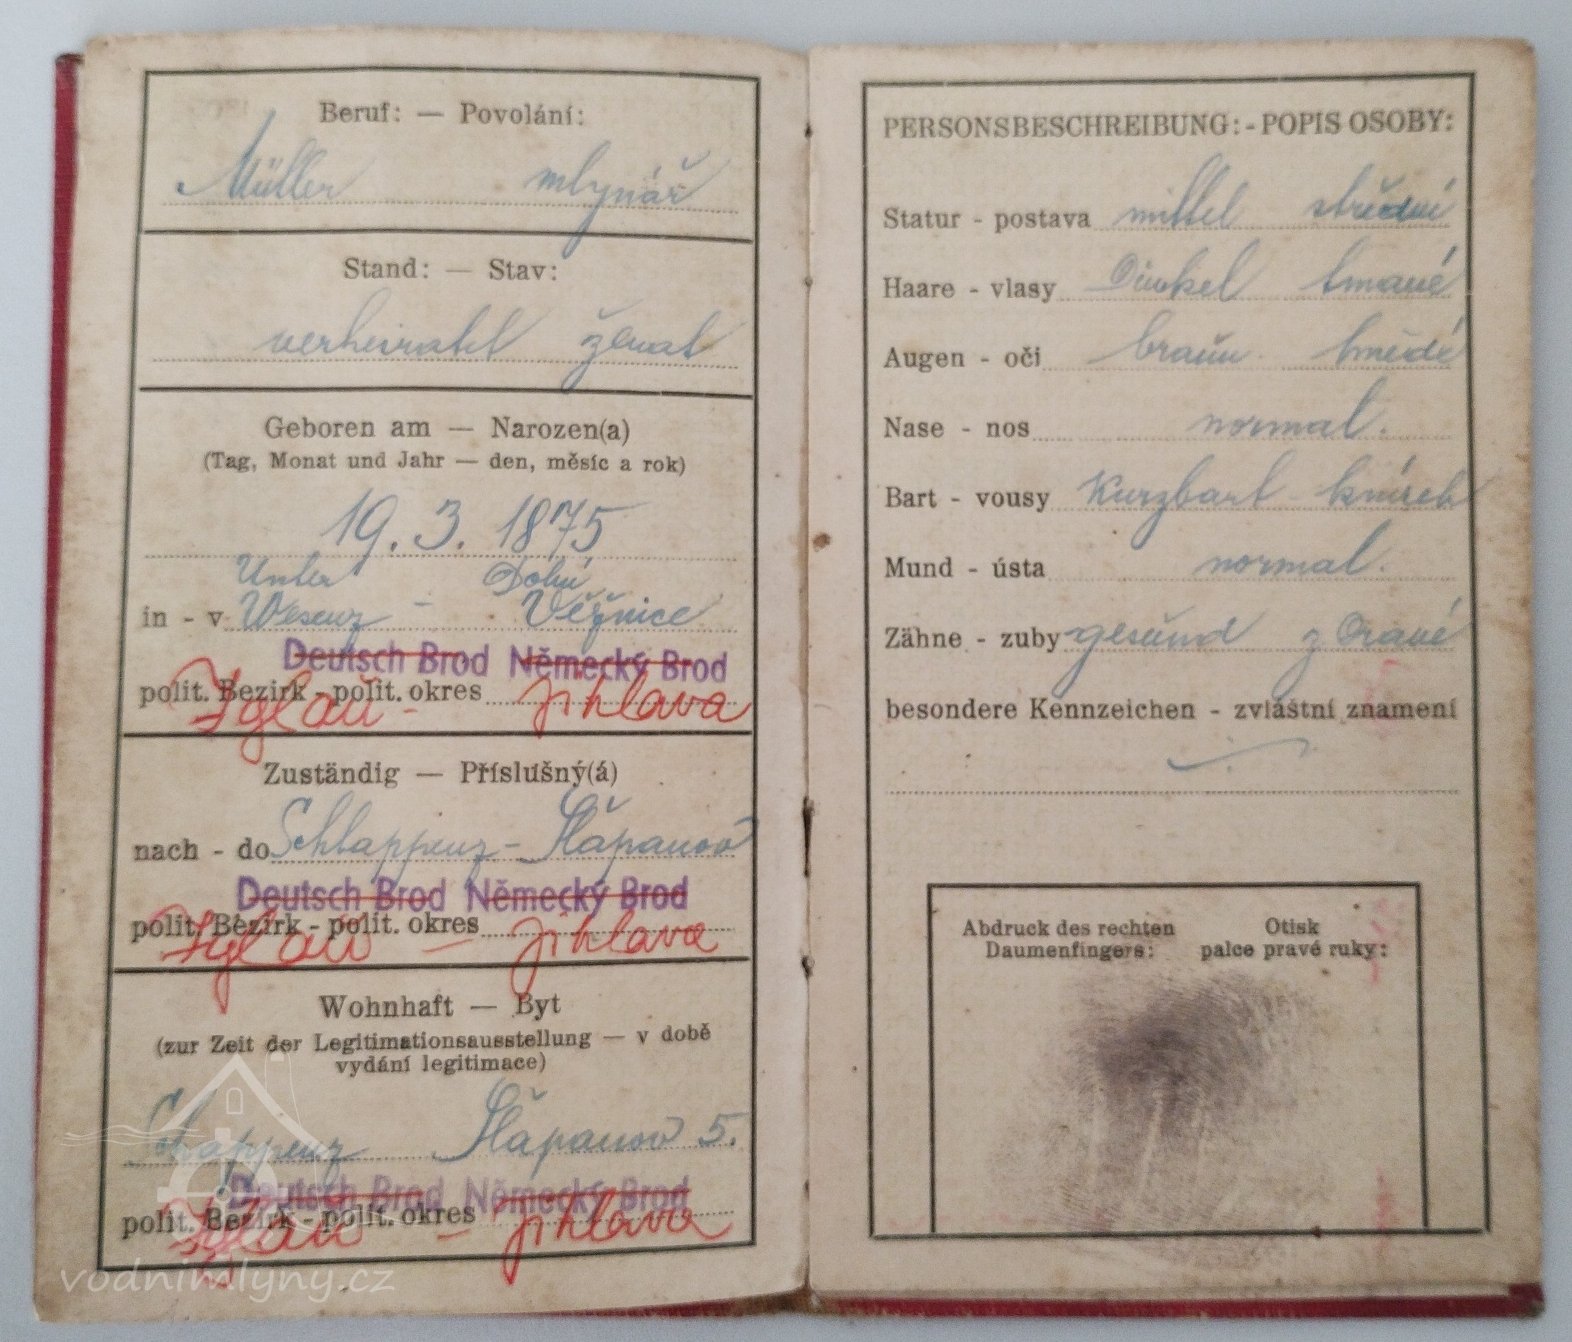 Beruf: — Povolání:
Müller mlynář
Stand: — Stav:
verheiratet ženat
Geboren am — Narozen(a)
(Tag, Monat und Jahr — den, měsíc a rok)
19. 3. 1875
Unter Dolní
in - v Wesenz - Věžnice
Deutsch Brod Německý Brod
polit. Bezirk - polit. okres
Iglau - Jihlava
Zuständig — Příslušný(á)
nach - do Schlappenz - Šlapanov
Deutsch Brod Německý Brod
polit. Bezirk - polit. okres
Iglau - Jihlava
Wohnhaft — Byt
(zur Zeit der Legitimationsausstellung — v době
vydání legitimace)
Schappenz Šlapanov 5.
Deutsch Brod Německý Brod
polit. Bezirk - polit. okres
Iglau - Jihlava
vodnimlyny.cz
PERSONSBESCHREIBUNG: - POPIS OSOBY:
Statur - postava mittel střední
Haare - vlasy Dunkel tmavé
Augen - oči braun hnědé
Nase - nos normal.
Bart - vousy Kurzbart - knírek
Mund - ústa normal.
Zähne - zuby gesund zdravé
besondere Kennzeichen - zvláštní znamení
Abdruck des rechten Otisk
Daumenfingers: palce pravé ruky: